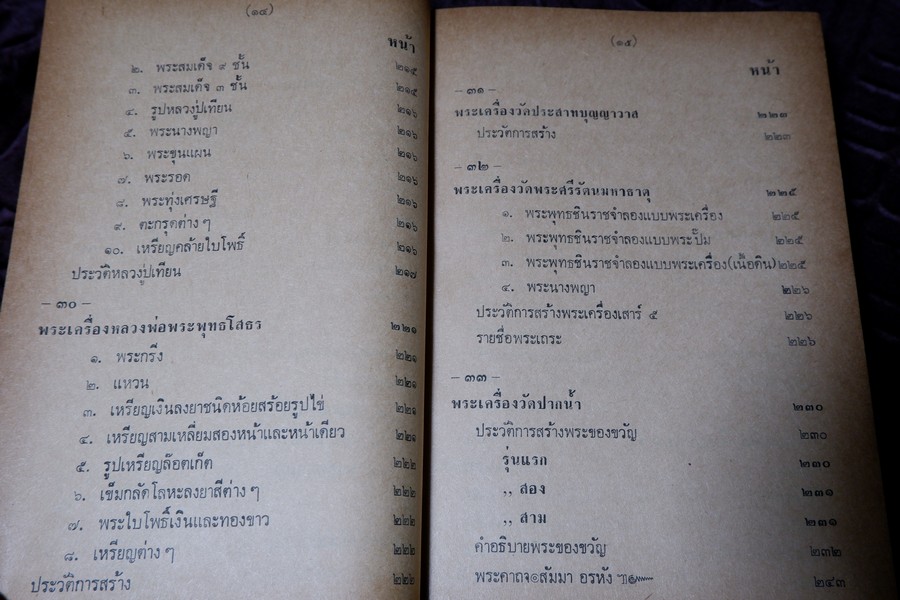 (๑๔)
หน้า
๒. พระสมเด็จ ๙ ชั้น ๒๑๕
๓. พระสมเด็จ ๓ ชั้น ๒๑๕
๔. รูปหลวงปู่เทียน ๒๑๖
๕. พระนางพญา ๒๑๖
๖. พระขุนแผน ๒๑๖
๗. พระรอด ๒๑๖
๘. พระทุ่งเศรษฐี ๒๑๖
๙. ตะกรุดต่าง ๆ ๒๑๖
๑๐. เหรียญคล้ายใบโพธิ์ ๒๑๖
ประวัติหลวงปู่เทียน ๒๑๗
– ๓๐ –
พระเครื่องหลวงพ่อพระพุทธโสธร ๒๒๑
๑. พระกริ่ง ๒๒๑
๒. แหวน ๒๒๑
๓. เหรียญเงินลงยาชนิดห้อยสร้อยรูปไข่ ๒๒๑
๔. เหรียญสามเหลี่ยมสองหน้าและหน้าเดียว ๒๒๑
๕. รูปเหรียญล๊อตเก็ต ๒๒๒
๖. เข็มกลัดโลหะลงยาสีต่าง ๆ ๒๒๒
๗. พระใบโพธิ์เงินและทองขาว ๒๒๒
๘. เหรียญต่าง ๆ ๒๒๒
ประวัติการสร้าง ๒๒๒
(๑๕)
หน้า
– ๓๑ –
พระเครื่องวัดประสาทบุญญาวาส ๒๒๓
ประวัติการสร้าง ๒๒๓
– ๓๒ –
พระเครื่องวัดพระศรีรัตนมหาธาตุ ๒๒๕
๑. พระพุทธชินราชจำลองแบบพระเครื่อง ๒๒๕
๒. พระพุทธชินราชจำลองแบบพระปั๊ม ๒๒๕
๓. พระพุทธชินราชจำลองแบบพระเครื่อง(เนื้อดิน) ๒๒๕
๔. พระนางพญา ๒๒๖
ประวัติการสร้างพระเครื่องเสาร์ ๕ ๒๒๖
รายชื่อพระเถระ ๒๒๖
– ๓๓ –
พระเครื่องวัดปากน้ำ ๒๓๐
ประวัติการสร้างพระของขวัญ ๒๓๐
รุ่นแรก ๒๓๐
,, สอง ๒๓๑
,, สาม ๒๓๑
คำอธิบายพระของขวัญ ๒๓๒
พระคาถาสัมมา อรหัง ๒๔๓